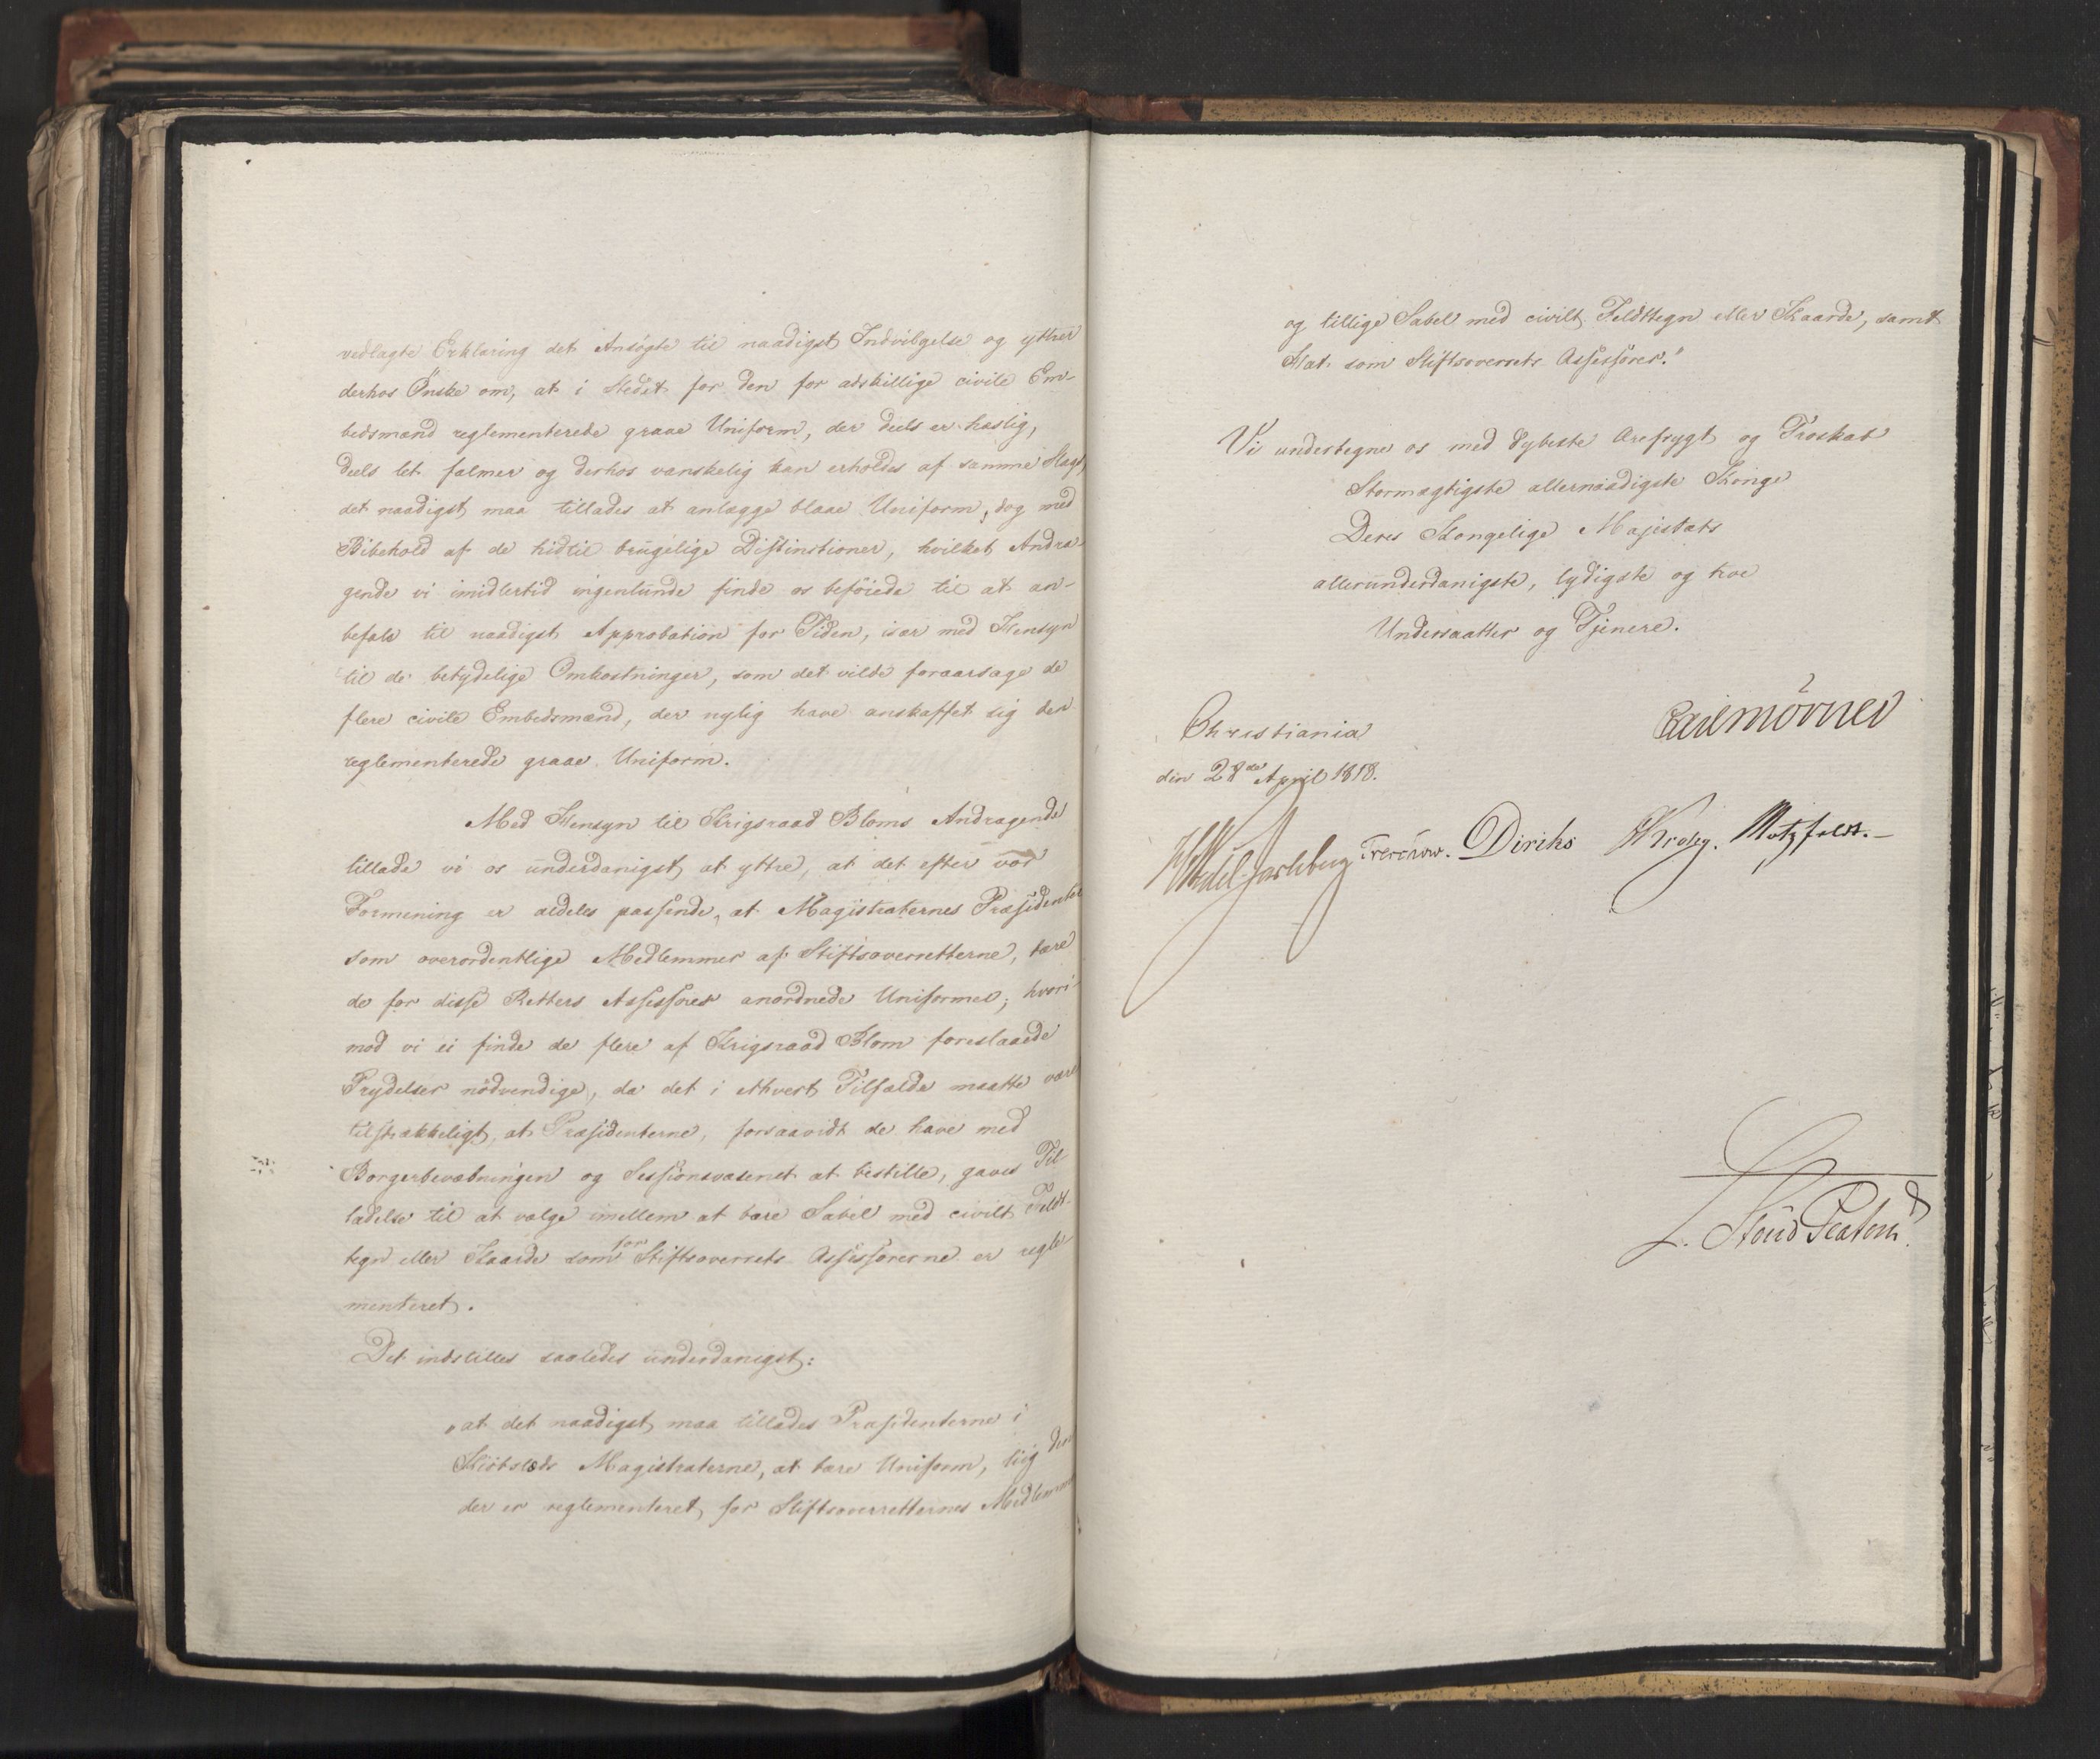 vedlagte Erklæring det Ansøgte til naadigst Indvilgelse og yttrer
derhos Ønske om, at i Stedet for den for adskillige civile Em-
bedsmænd reglementerede graae Uniform, der deels er hæslig,
deels let falmer og derhos vanskelig kan erholdes af samme Slags,
det naadigst maa tillades at anlægge blaae Uniform, dog med
Bibehold af de hidtil brugelige Distinctioner, hvilket Andra-
gende vi imidlertid ingenlunde finde os beføiede til at an-
befale til naadigst Approbation for Tiden, især med Hensyn
til de betydelige Omkostninger, som det vilde foraarsage de
flere civile Embedsmænd, der nylig have anskaffet sig den
reglementerede graae Uniform.
Med Hensyn til Krigsraad Bloms Andragende
tillade vi os underdanigst at yttre, at det efter vor
Formening er aldeles passende, at Magistraternes Præsidenter
som overordentlige Medlemmer af Stiftsoverretterne, bære
de for disse Retters Assessorer anordnede Uniformer, hvori-
mod vi ei finde de flere af Krigsraad Blom foreslaaede
Prydelser nødvendige, da det i ethvert Tilfælde maatte være
tilstrækkeligt, at Præsidenterne, forsaavidt de have med
Borgerbevæbningen og Sessionsvæsenet at bestille, gaves Til-
ladelse til at vælge imellem at bære Sabel med civilt Feldt-
tegn eller Kaarde som for Stiftsoverrets Assessorerne er regle-
menteret.
Det indstilles saaledes underdanigst:
"at det naadigst maa tillades Præsidenterne i
Kiöbstæds Magistraterne, at bære Uniform, liig den
der er reglementeret for Stiftsoverretternes Medlemmer
og tillige Sabel med civilt Feldttegn eller Kaarde, samt
Hat som Stiftsoverrets Assessorer."
Vi undertegne os med dybeste Ærefrygt og Troskab
Stormægtigste allernaadigste Konge
Deres Kongelige Majestæts
allerunderdanigste, lydigste og troe
Undersaatter og Tjenere.
Christiania
den 28de April 1818.
Carl Mörner
HWedel Jarlsberg Treschow. Diriks HKrohg. Motzfeldt.
L. Stoud Platou